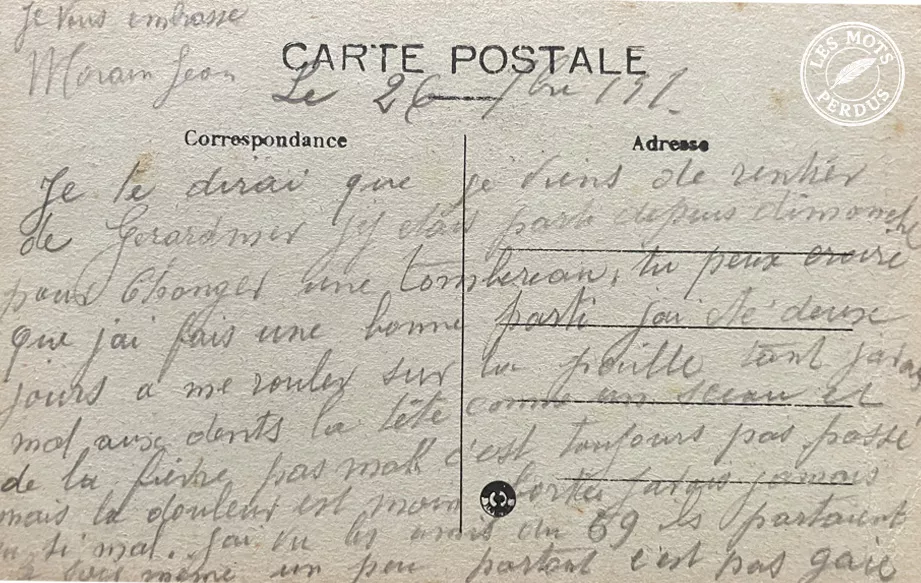 Je vous embrasse
Morain Jean
CARTE POSTALE
LES MOTS PERDUS
Le 26
Correspondance
Adresse
Je te dirai que je viens de rentrer
de Gerardmer j'y étais parti depuis dimanche
pour changer une tombereau, tu peux croire
que jai fais une bonne parti jai été deux
jours a me rouler sur la paille tant javai
mal aux dents la tête comme un sceau et
de la fièvre pas mal c'est toujours pas passé
mais la douleur est moins jamais
si mal. jai vu les amis du 69 ils partaient
même un peu partout c'est pas gaie